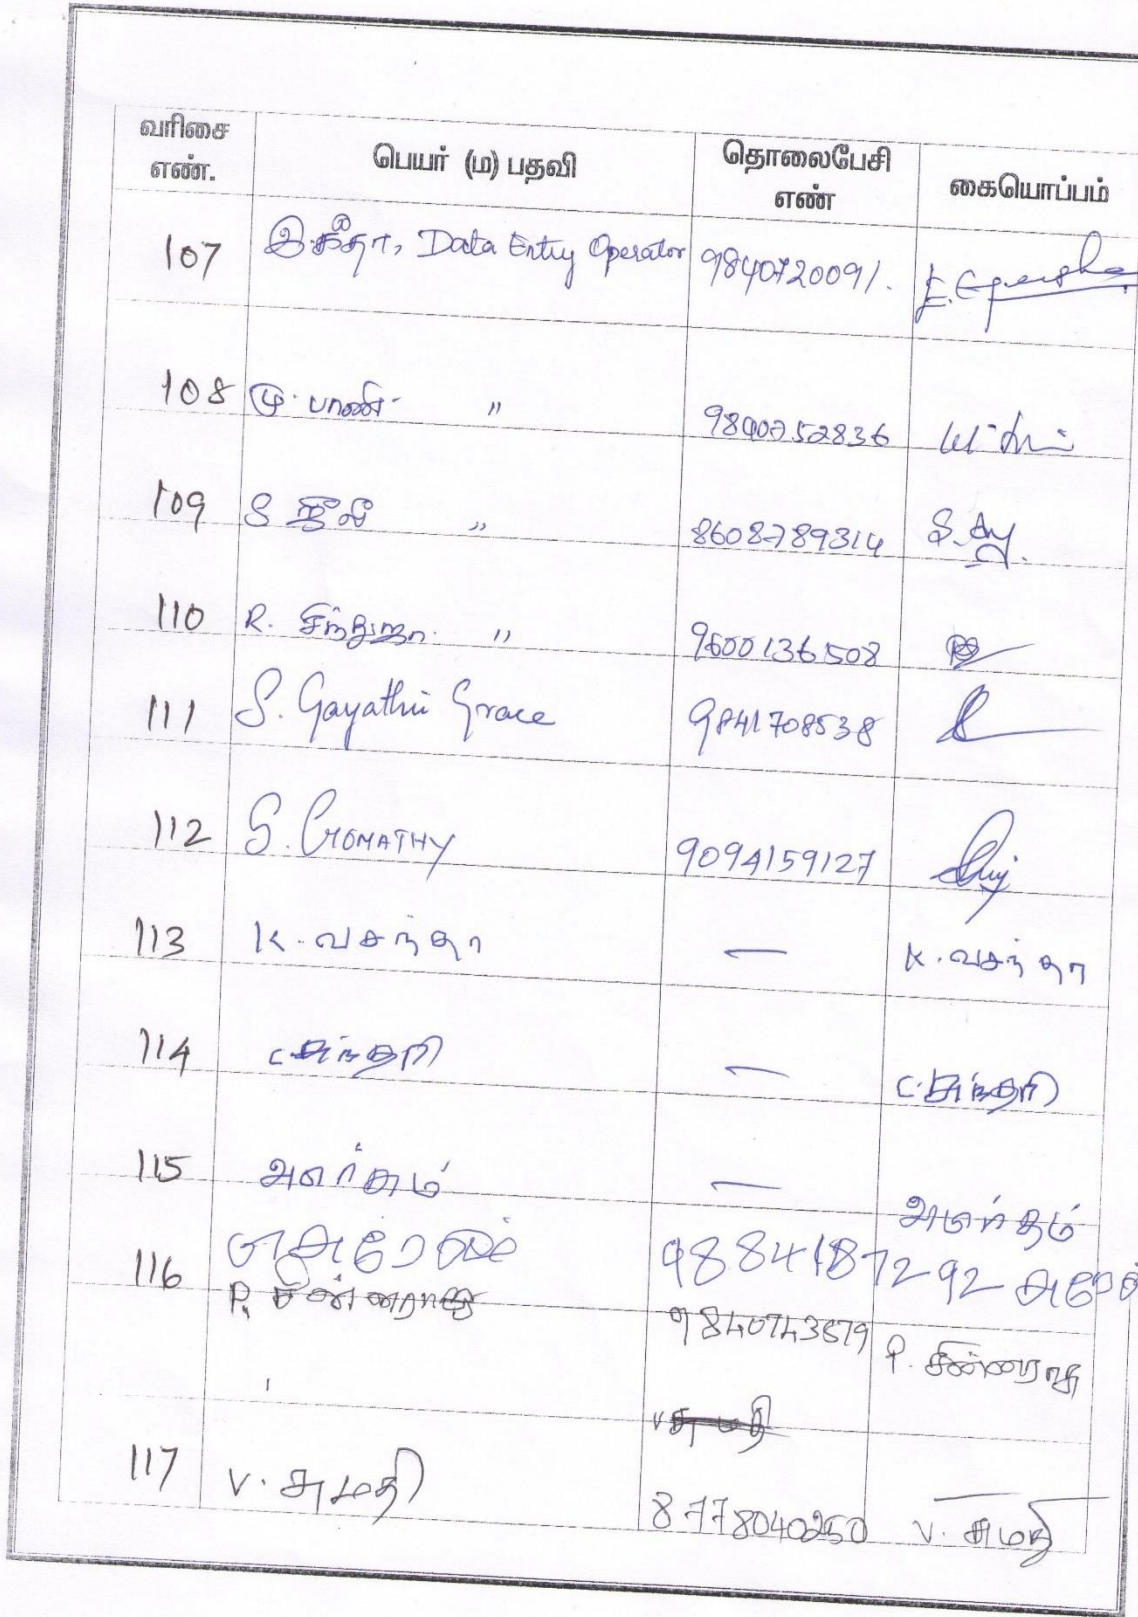 வரிசை எண். பெயர் (ம) பதவி தொலைபேசி எண் கையொப்பம்
107 இ.கீதா, Data Entry Operator 9840720091.
108 மு. பாண் " 9840752836
109 S ஜூலி " 8608789314
110 R. சிந்துஜா " 9600136508
111 S. Gayathri Grace 9841708538
112 S. GOMATHY 9094159127
113 K. வசந்தா — K. வசந்தா
114 C. சுந்தரி — C. சுந்தரி
115 — அமிர்தம்
116 9884187292
P. சின்னராசு 9840743579 P. சின்னராசு
V சுமதி
117 V. சுமதி 8778040250 V. சுமதி